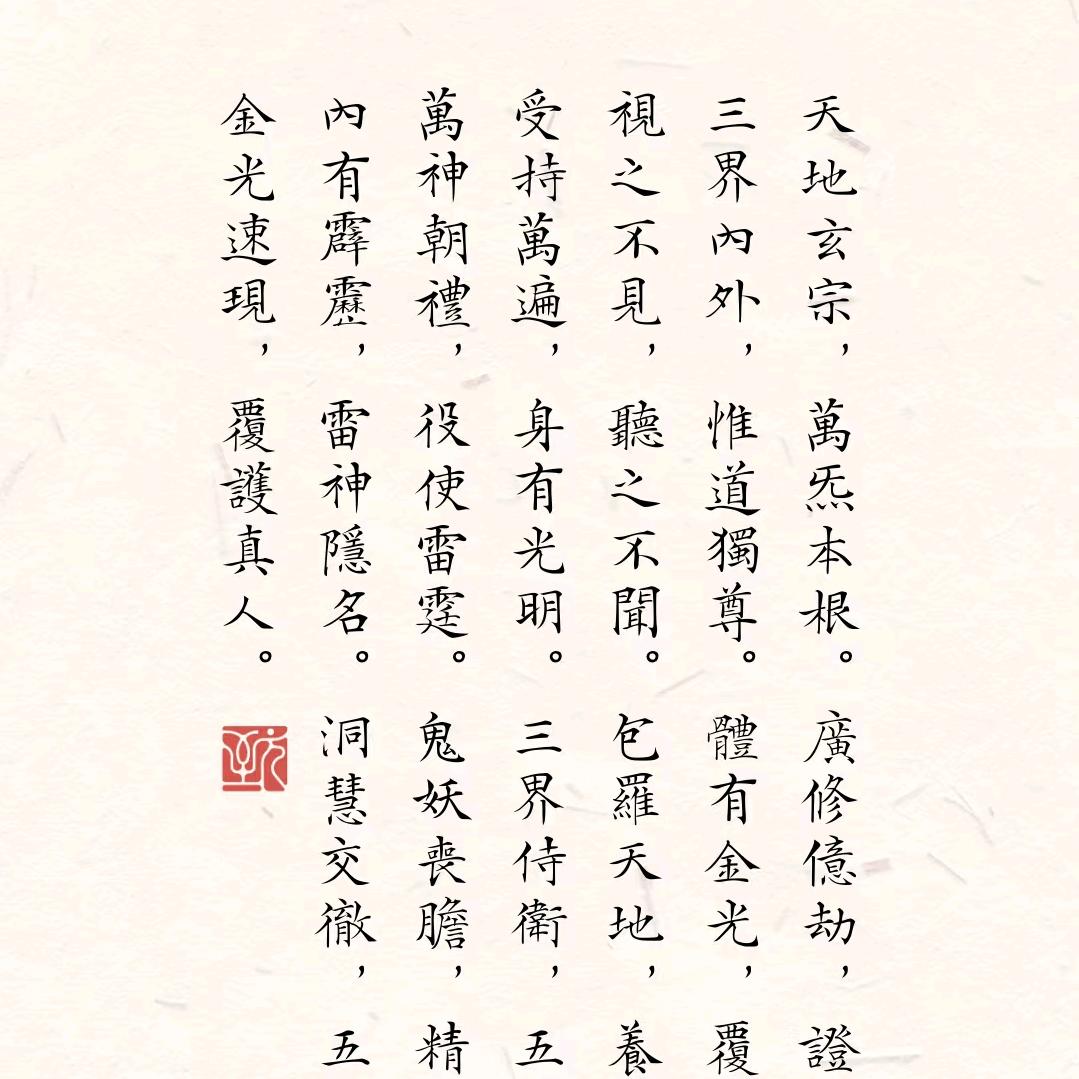 天地玄宗，萬炁本根。廣修億劫，證
三界內外，惟道獨尊。體有金光，覆
視之不見，聽之不聞。包羅天地，養
受持萬遍，身有光明。三界侍衛，五
萬神朝禮，役使雷霆。鬼妖喪膽，精
內有霹靂，雷神隱名。洞慧交徹，五
金光速現，覆護真人。